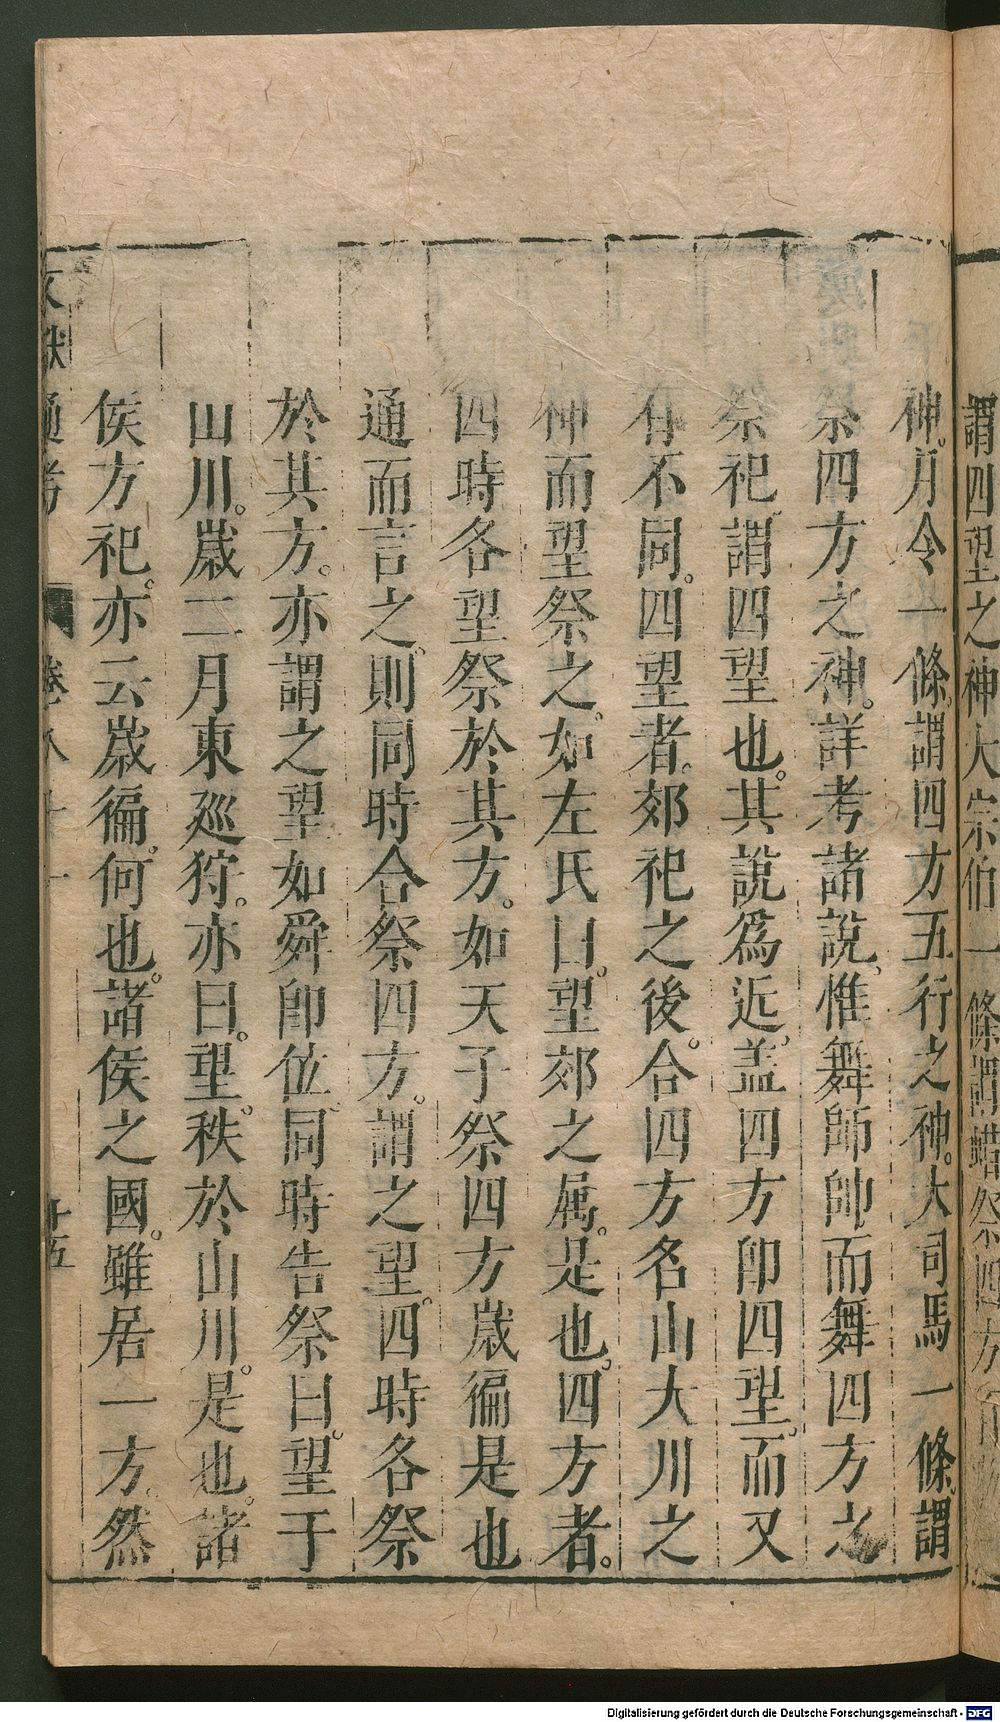 謂四望之神大宗伯一條謂蜡祭四方
神月令一條謂四方五行之神大司馬一條謂
祭四方之神。詳考諸說、惟舞師帥而舞四方之
祭祀謂四望也。其說爲近。盖四方卽四望。而又
有不同。四望者。郊祀之後。合四方名山大川之
神而望祭之。如左氏曰。望郊之属。是也。四方者。
四時各望祭於其方。如天子祭四方歲徧是也
通而言之。則同時合祭四方。謂之望。四時各祭
於其方。亦謂之望如舜卽位同時告祭曰。望于
山川。歲二月東廵狩。亦曰。望。秩於山川。是也。諸
侯方祀。亦云歲徧。何也。諸侯之國。雖居一方。然
文獻通考 卷八十一 十五
Digitalisierung gefördert durch die Deutsche Forschungsgemeinschaft - DFG